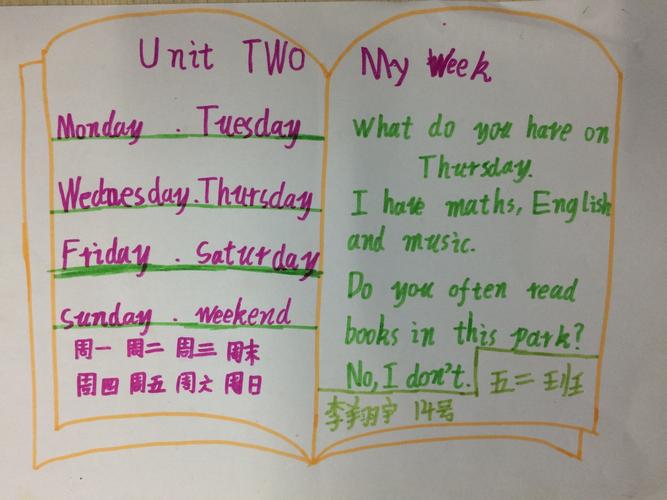 Unit TWO
Monday . Tuesday
Wednesday. Thursday
Friday . Saturday
Sunday . weekend
周一 周二 周三 周末
周四 周五 周六 周日
My Week
What do you have on
Thursday.
I have maths, English
and music.
Do you often read
books in this park?
No, I don't.
五二班
李翔宇 14号